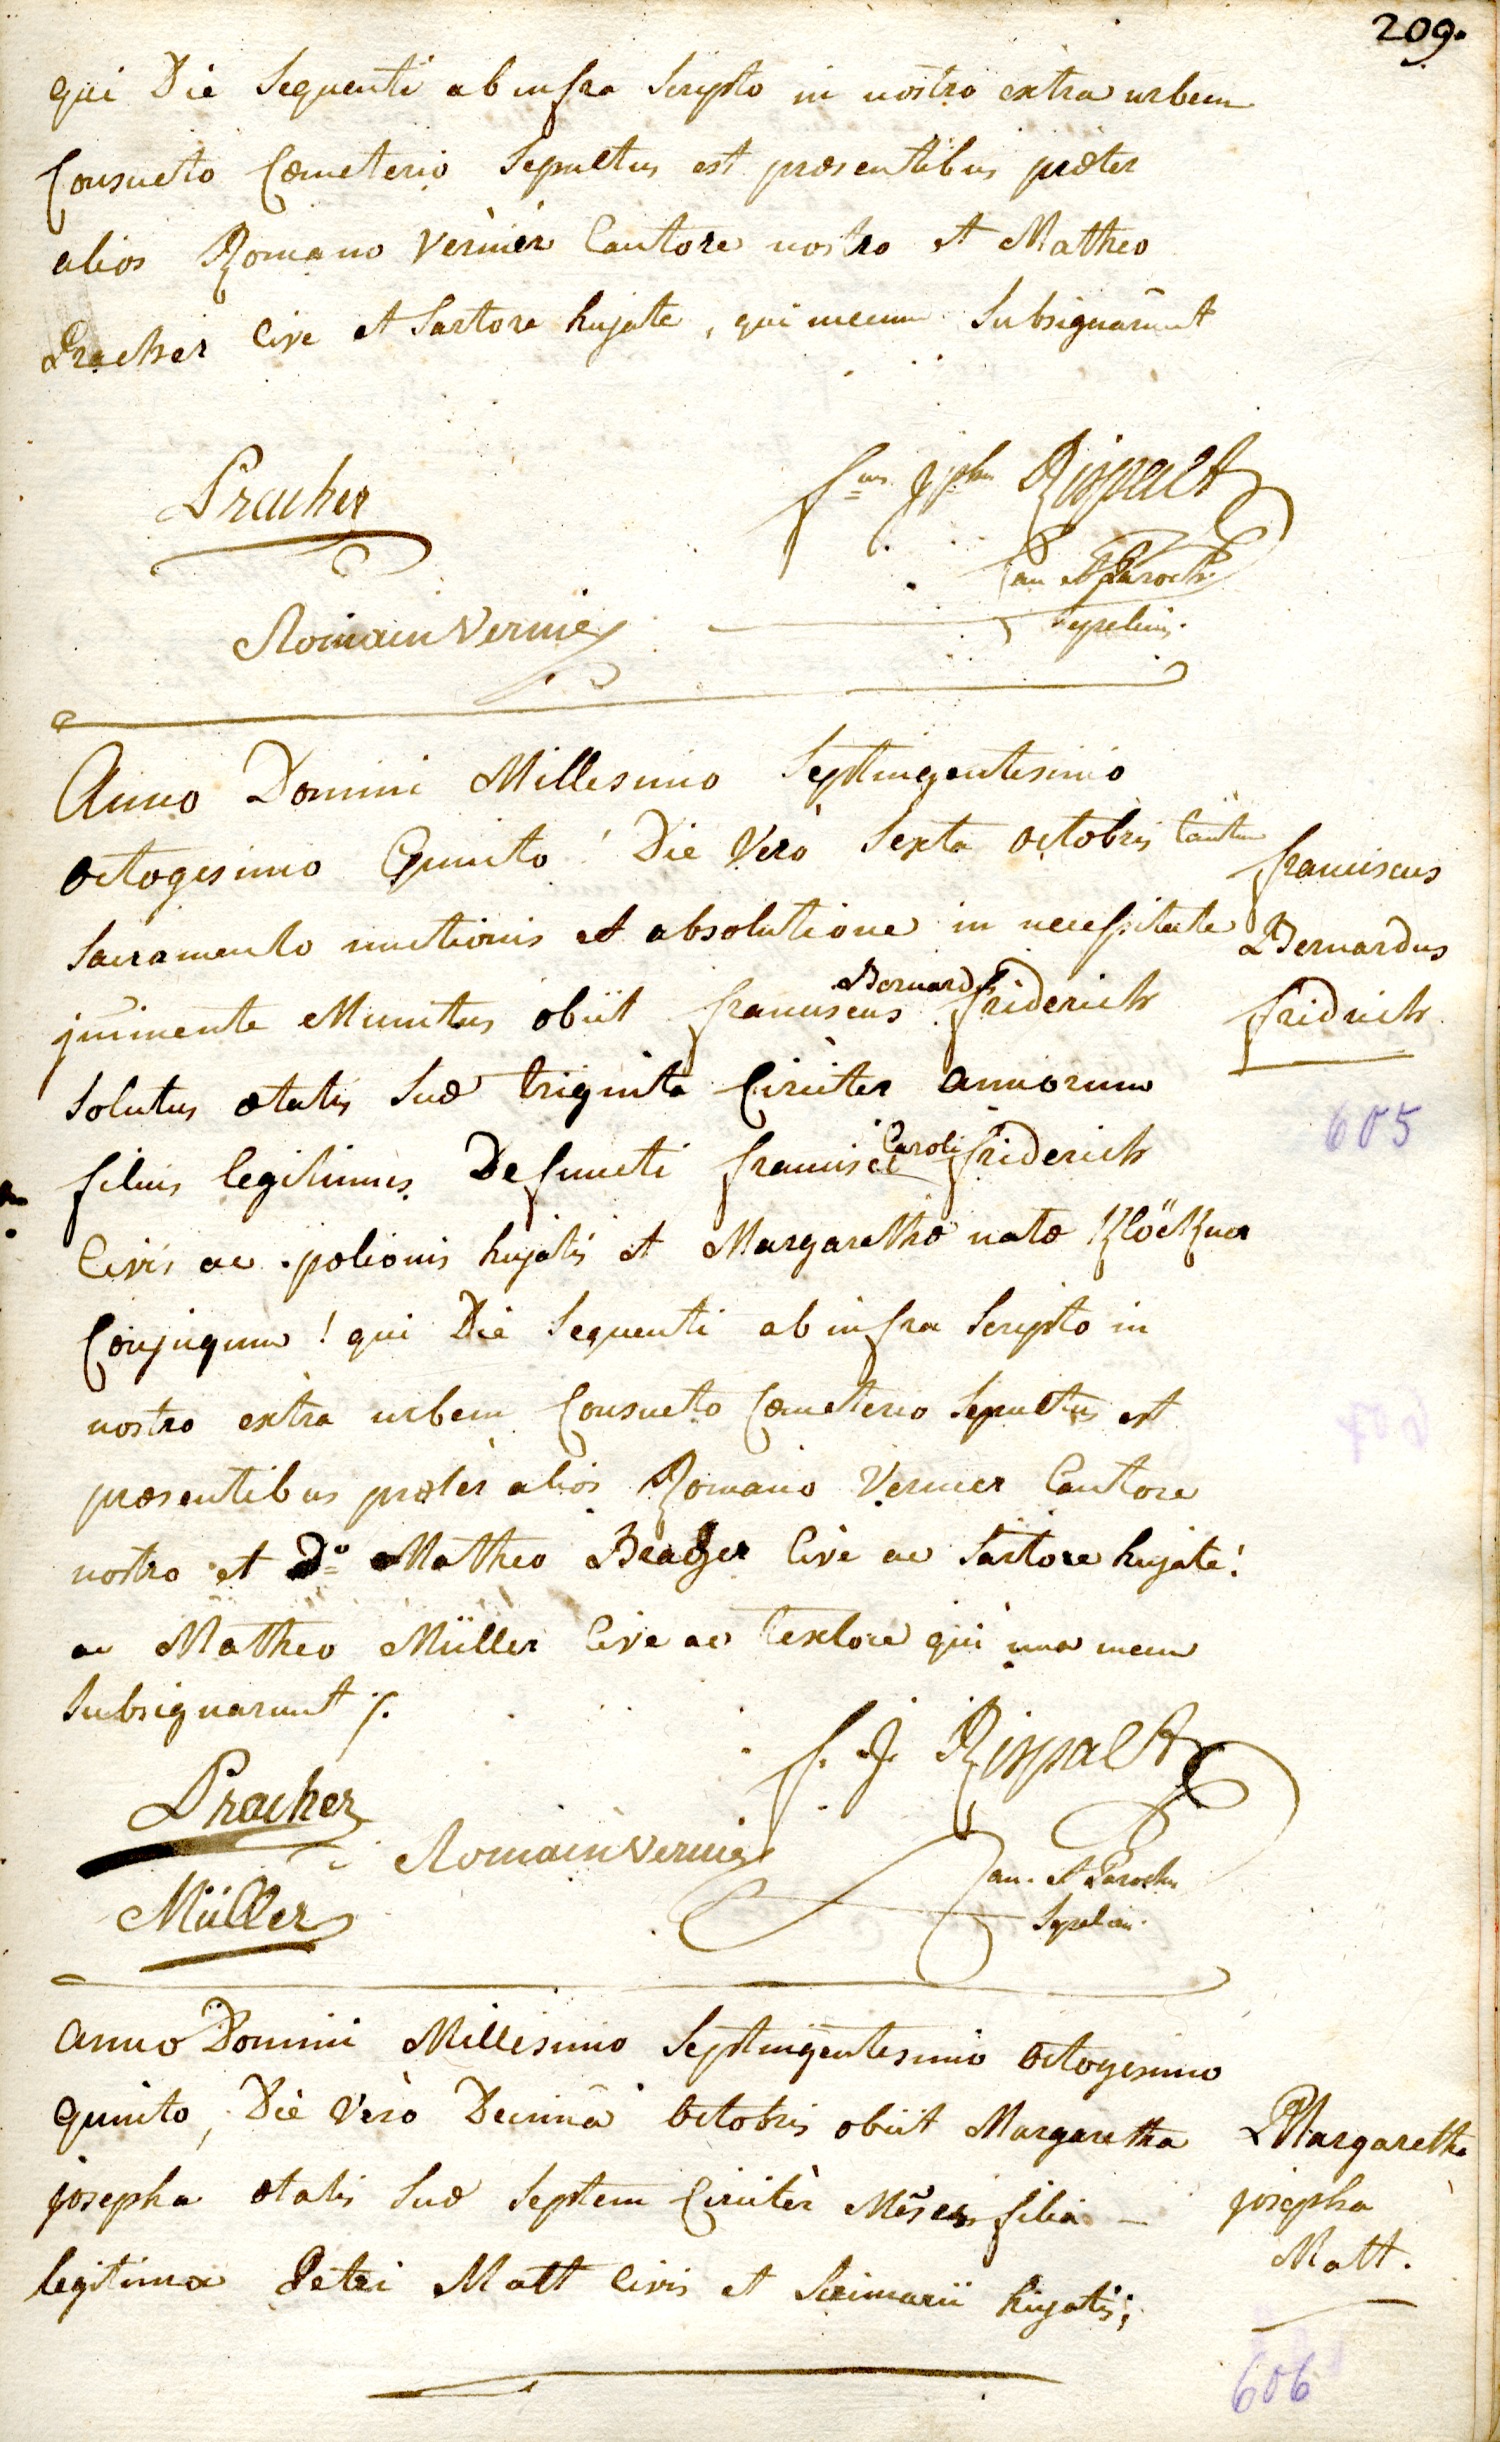 209.
qui Die Sequenti ab infra Scripto in nostro extra urbem
Consueto Cœmeterio Sepultus est præsentibus præter
alios Romano Vernier Cantore nostro et Matheo
Pracher Cive et Sartore hujate, qui mecum Subsignarunt
Pracher
f=us Jphus Rispalt
Can et Paroch.
Romain Vernier
Sepeliens.
Anno Domini Millesimo Septingentesimo
octogesimo Quinto! Die Verò Sexta octobris tantum
franciscus
Sacramento unctionis et absolutione in necessitate
Bernardus
jminente Munitus obiit franciscus Bernardus friderich
fridrich
Solutus ætatis Suæ triginta Circiter annorum
605
filius legitimus Defuncti francisci Caroli friderich
Civis ac polionis hujatis et Margarethæ natæ Klöckner
Conjugum! qui Die Sequenti ab infra Scripto in
nostro extra urbem Consueto Cœmeterio Sepultus est
præsentibus præter alios Romano Vernier Cantore
nostro et D=o Matheo Bracher Cive ac Sartore hujate!
ac Matheo Müller Cive ac textore qui una mecum
Subsignarunt /.
f. J. Rispalt
Pracher
Romain Vernier
Can. et Parochus
Müller
Sepelien.
Anno Domini Millesimo Septingentesimo octogesimo
Quinto, Die Verò Decimâ octobris obiit Margaretha
Margaretha
josepha ætatis Suæ Septem Circitèr Menses filia –
josepha
Matt.
legitima Petri Matt Civis et Scrimarii hujatis;
606